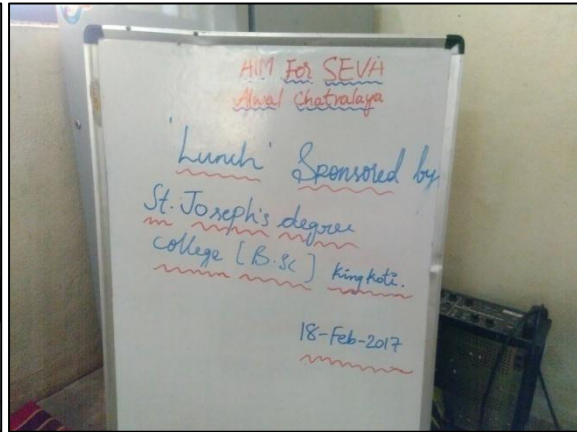 AIM For SEVA
Alwal Chatralaya
'Lunch' Sponsored by
St. Joseph's degree
college [B.Sc] King koti.
18-Feb-2017